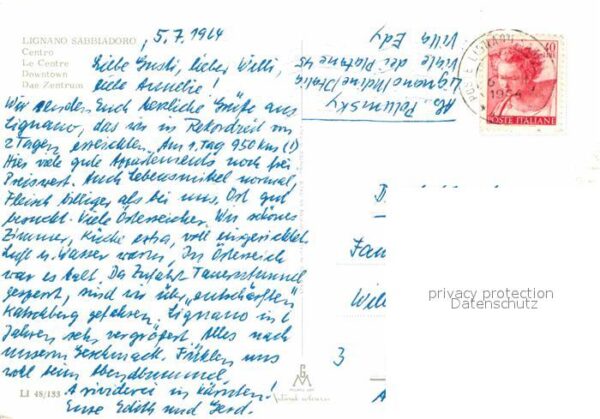 LIGNANO SABBIADORO
Centro
Le Centre
Downtown
Das Zentrum
, 5.7.1964
Liebe Gusti, lieber Willi,
liebe Annelie!
Wir senden Euch herzliche Grüße aus
Lignano, das wir in Rekordzeit von
2 Tagen erreichten. Am 1. Tag 950 km (!)
Hier viele gute Appartements noch frei.
Preiswert. Auch Lebensmittel normal,
Fleisch billiger als bei uns. Ort gut
besucht. Viele Österreicher. Wir schönes
Zimmer, Küche extra, voll eingerichtet.
Luft u. Wasser warm, In Österreich
war es kalt. Da Zufahrt Tauerntunnel
gesperrt, sind wir über „entschärften"
Katschberg gefahren. Lignano in 6
Jahren sehr vergrößert. Alles nach
unserem Geschmack. Fühlen uns
wohl beim Abendbummel
Arrividerci in
Eure Edith und Gerd.
LI 48/133
Abs. Polumsky
Lignano/Udine/Italia
Viale dei Platani 45
Villa Edy
40
POSTE ITALIANE
1964
Fam
Wil
3
A
privacy protection
Datenschutz